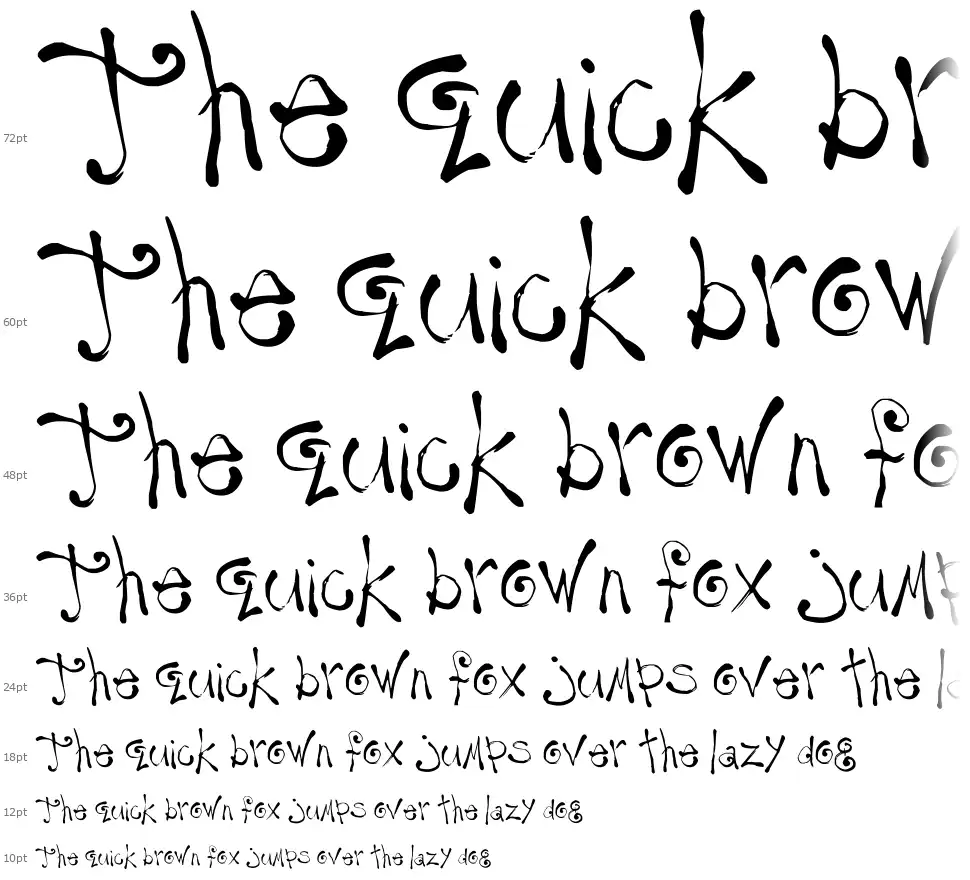 72pt The quick br
60pt The quick brow
48pt The quick brown fo
36pt The quick brown fox jump
24pt The quick brown fox jumps over the l
18pt The quick brown fox jumps over the lazy dog
12pt The quick brown fox jumps over the lazy dog
10pt The quick brown fox jumps over the lazy dog